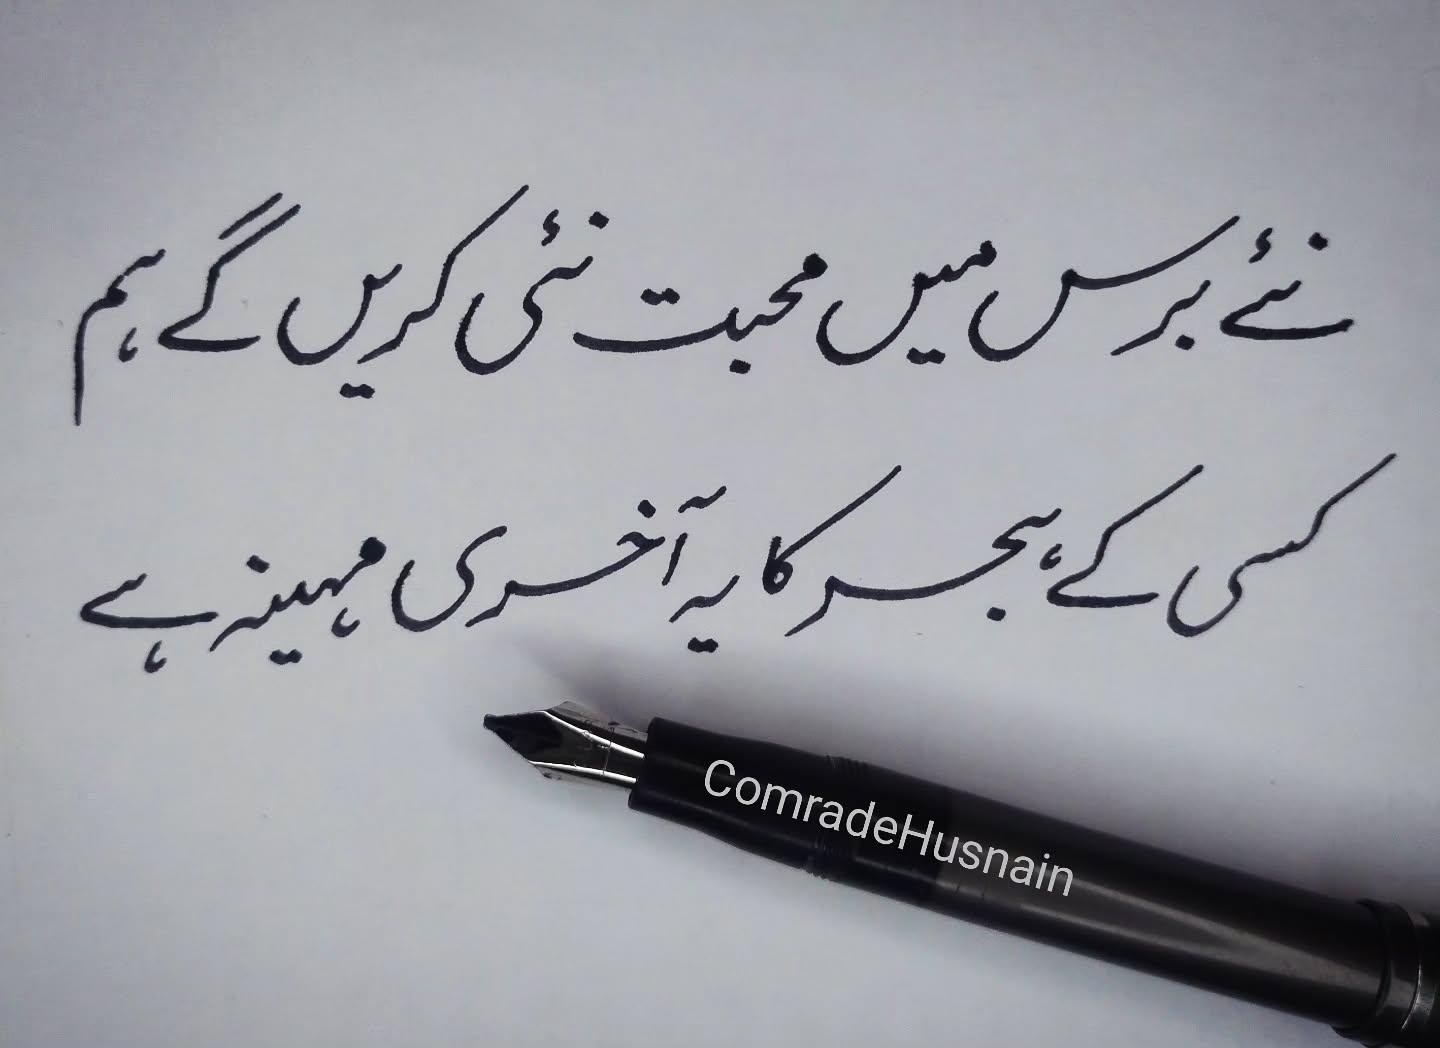 نئے برس میں محبت نئی کریں گے ہم
کسی کے ہجر کا یہ آخری مہینہ ہے
ComradeHusnain